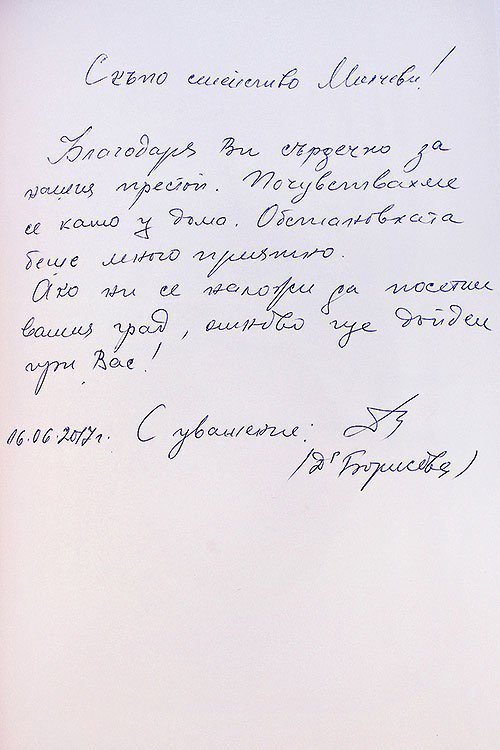 Скъпо семейство Милчеви!
Благодаря Ви сърдечно за
нашия престой. Почувствахме
се като у дома. Обстановката
беше много приятно.
Ако ни се наложи да посетим
вашия град, отново ще дойдем
при Вас!
06.06.2017г. С уважение:
(Д-р Борисова)